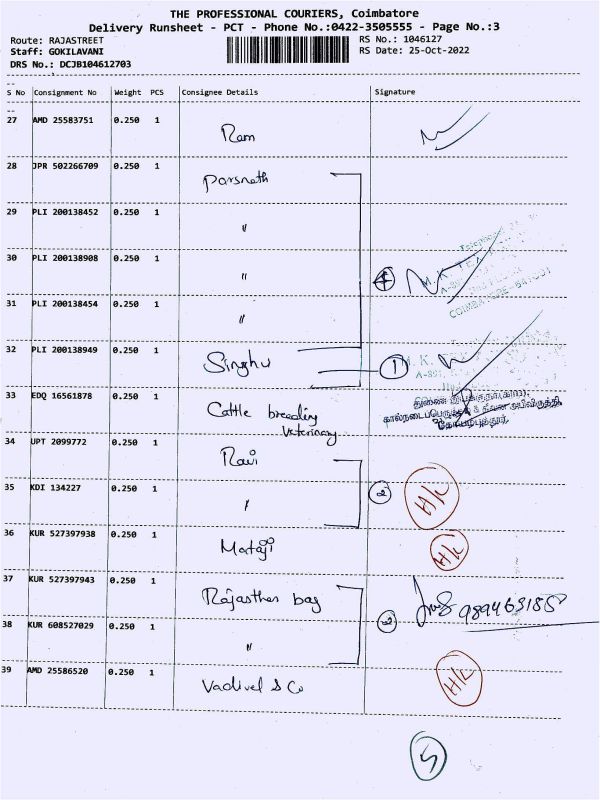 THE PROFESSIONAL COURIERS, Coimbatore
Delivery Runsheet - PCT - Phone No.:0422-3505555 - Page No.:3
Route: RAJASTREET
RS No.: 1046127
Staff: GOKILAVANI
RS Date: 25-Oct-2022
DRS No.: DCJB104612703
S No Consignment No Weight PCS Consignee Details Signature
27 AMD 25583751 0.250 1 Ram
28 JPR 502266709 0.250 1 Parsnath
29 PLI 200138452 0.250 1 "
30 PLI 200138908 0.250 1 "
31 PLI 200138454 0.250 1 "
32 PLI 200138949 0.250 1 Singhu 1
33 EDQ 16561878 0.250 1 Cattle breeding
Veterinary
34 UPT 2099772 0.250 1 Ravi
35 KDI 134227 0.250 1 " 2 H/L
36 KUR 527397938 0.250 1 Mataji H/L
37 KUR 527397943 0.250 1 Rajasthan bag
38 KUR 608527029 0.250 1 " 2
39 AMD 25586520 0.250 1 Vadivel & Co H/L